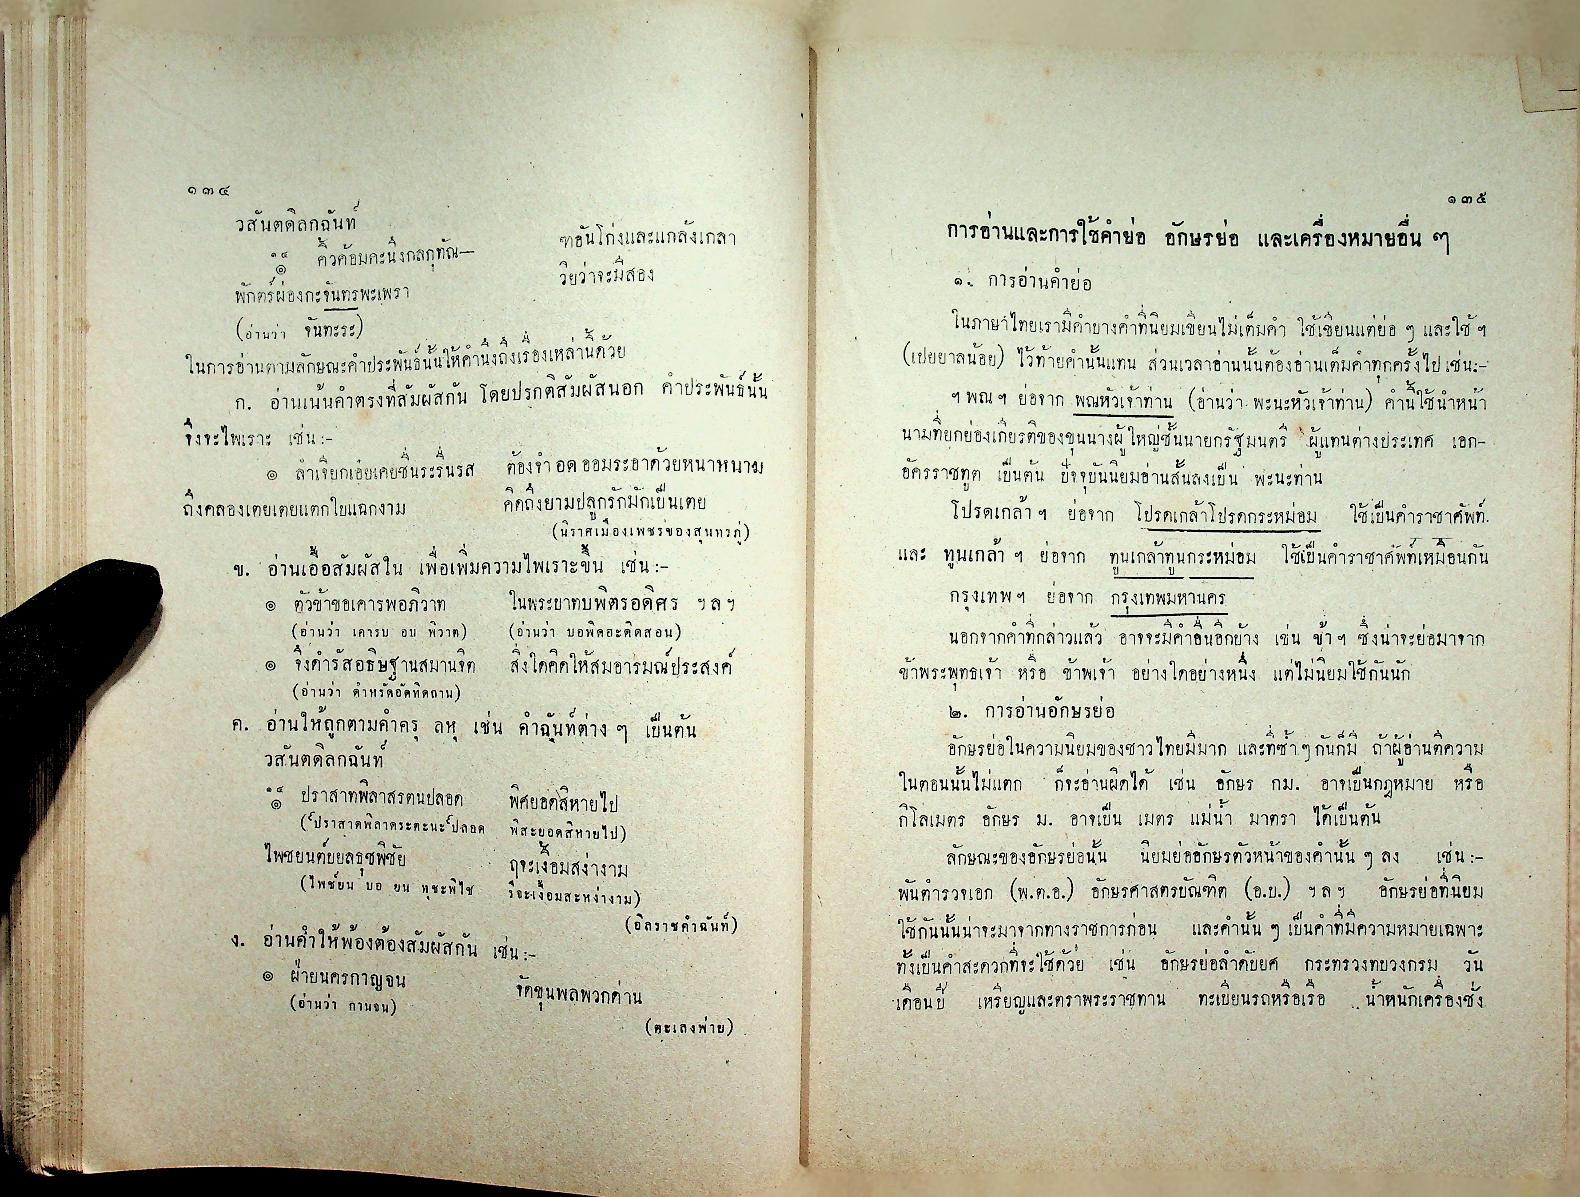 ๑๓๔
วสันตดิลกฉันท์
๏ คิ้วค้อมคะนึงกลกุทัณ— ฑอันโก่งและแกล้งเกลา
พักตร์ผ่องกะจันทรพะเพรา วิยว่าจะมีสอง
(อ่านว่า จันทะระ)
ในการอ่านตามลักษณะคำประพันธ์นั้นให้คำนึงถึงเรื่องเหล่านี้ด้วย
ก. อ่านเน้นคำตรงที่สัมผัสกัน โดยปรกติสัมผัสนอก คำประพันธ์นั้น
จึงจะไพเราะ เช่น :-
๏ ลำเจียกเอ๋ยเคยชื่นระรื่นรส ต้องจำอดออมระอาด้วยหนาหนาม
ถึงคลองเตยเตยแตกใบแฉกงาม คิดถึงยามปลูกรักมักเป็นเตย
(นิราศเมืองเพชรของสุนทรภู่)
ข. อ่านเอื้อสัมผัสใน เพื่อเพิ่มความไพเราะขึ้น เช่น :-
๏ ตัวข้าขอเคารพอภิวาท ในพระบาทบพิตรอดิศร ฯลฯ
(อ่านว่า เคารบ อบ พิวาด) (อ่านว่า บอพิดอะดิดสอน)
๏ จึงดำรัสอธิษฐานสมานจิต สิ่งใดคิดให้สมอารมณ์ประสงค์
(อ่านว่า ดำหรัดอัดทิดถาน)
ค. อ่านให้ถูกตามคำครุ ลหุ เช่น คำฉันท์ต่าง ๆ เป็นต้น
วสันตดิลกฉันท์
๏ ปราสาทพิลาสรตนปลอด พิศยอดสิหายไป
(ปราสาดพิลาดระตะนะปลอด พิสะยอดสิหายไป)
ไพชยนต์บยลธุชพิชัย ฤจะเงื้อมสง่างาม
(ไพช์ยน บอ ยน ทุชะพิไช รึจะเงื้อมสะหง่างาม)
(อิลราชคำฉันท์)
ง. อ่านคำให้พ้องต้องสัมผัสกัน เช่น :-
๏ ฝ่ายนครกาญจน จัดขุนพลพวกด่าน
(อ่านว่า กานจน)
(ตะเลงพ่าย)
๑๓๕
การอ่านและการใช้คำย่อ อักษรย่อ และเครื่องหมายอื่น ๆ
๑. การอ่านคำย่อ
ในภาษาไทยเรามีคำบางคำที่นิยมเขียนไม่เต็มคำ ใช้เขียนแต่ย่อ ๆ และใช้ ฯ
(เปยยาลน้อย) ไว้ท้ายคำนั้นแทน ส่วนเวลาอ่านนั้นต้องอ่านเต็มคำทุกครั้งไป เช่น:-
ฯพณฯ ย่อจาก พณหัวเจ้าท่าน (อ่านว่า พะนะหัวเจ้าท่าน) คำนี้ใช้นำหน้า
นามที่ยกย่องเกียรติของขุนนางผู้ใหญ่ชั้นนายกรัฐมนตรี ผู้แทนต่างประเทศ เอก-
อัครราชทูต เป็นต้น ปัจจุบันนิยมอ่านสั้นลงเป็น พะนะท่าน
โปรดเกล้าฯ ย่อจาก โปรดเกล้าโปรดกระหม่อม ใช้เป็นคำราชาศัพท์
และ ทูนเกล้าฯ ย่อจาก ทูนเกล้าทูนกระหม่อม ใช้เป็นคำราชาศัพท์เหมือนกัน
กรุงเทพฯ ย่อจาก กรุงเทพมหานคร
นอกจากคำที่กล่าวแล้ว อาจจะมีคำอื่นอีกบ้าง เช่น ข้าฯ ซึ่งน่าจะย่อมาจาก
ข้าพระพุทธเจ้า หรือ ข้าพเจ้า อย่างใดอย่างหนึ่ง แต่ไม่นิยมใช้กันนัก
๒. การอ่านอักษรย่อ
อักษรย่อในความนิยมของชาวไทยมีมาก และที่ซ้ำ ๆ กันก็มี ถ้าผู้อ่านตีความ
ในตอนนั้นไม่แตก ก็จะอ่านผิดได้ เช่น อักษร กม. อาจเป็นกฎหมาย หรือ
กิโลเมตร อักษร ม. อาจเป็น เมตร แม่น้ำ มาตรา ได้เป็นต้น
ลักษณะของอักษรย่อนั้น นิยมย่ออักษรตัวหน้าของคำนั้น ๆ ลง เช่น :-
พันตำรวจเอก (พ.ต.อ.) อักษรศาสตรบัณฑิต (อ.บ.) ฯลฯ อักษรย่อที่นิยม
ใช้กันนั้นน่าจะมาจากทางราชการก่อน และคำนั้น ๆ เป็นคำที่มีความหมายเฉพาะ
ทั้งเป็นคำสะดวกที่จะใช้ด้วย เช่น อักษรย่อลำดับยศ กระทรวงทบวงกรม วัน
เดือนปี เหรียญและตราพระราชทาน ทะเบียนรถหรือเรือ น้ำหนักเครื่องชั่ง